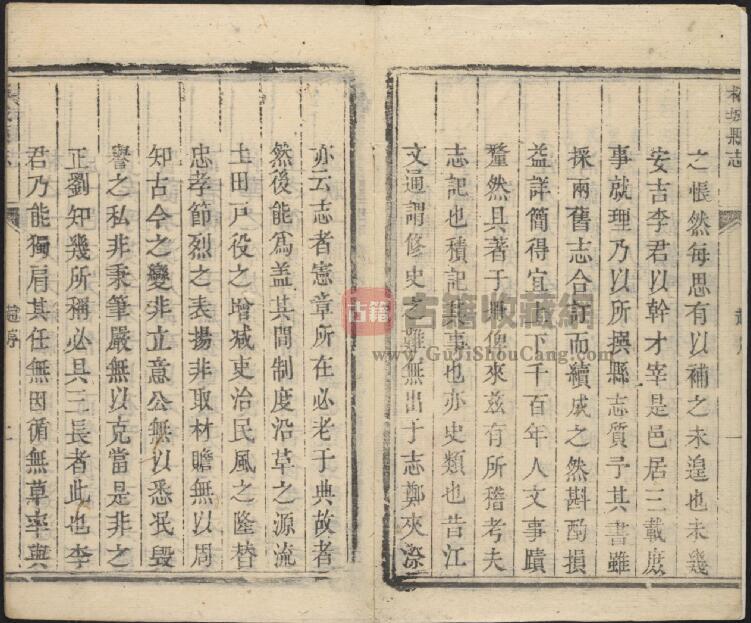 柘城縣志
一
之悵然每思有以補之未遑也未幾
安吉李君以幹才宰是邑居三載庶
事就理乃以所撰縣志質予其書雖
採兩舊志合訂而續成之然斟酌損
益詳簡得宜上下千百年人文事蹟
釐然具著于冊俾來兹有所稽考夫
志記也積記其事也亦史類也昔江
文通謂修史之難無出于志鄭夾漈
亦云志者憲章所在必老于典故者
然後能爲盖其間制度沿革之源流
土田戸役之增减吏治民風之隆替
忠孝節烈之表揚非取材贍無以周
知古今之變非立意公無以悉泯毀
譽之私非秉筆嚴無以克當是非之
正劉知幾所稱必具三長者此也李
君乃能獨肩其任無因循無草率與
趙序
古籍
古籍收藏網
www.GuJiShouCang.com